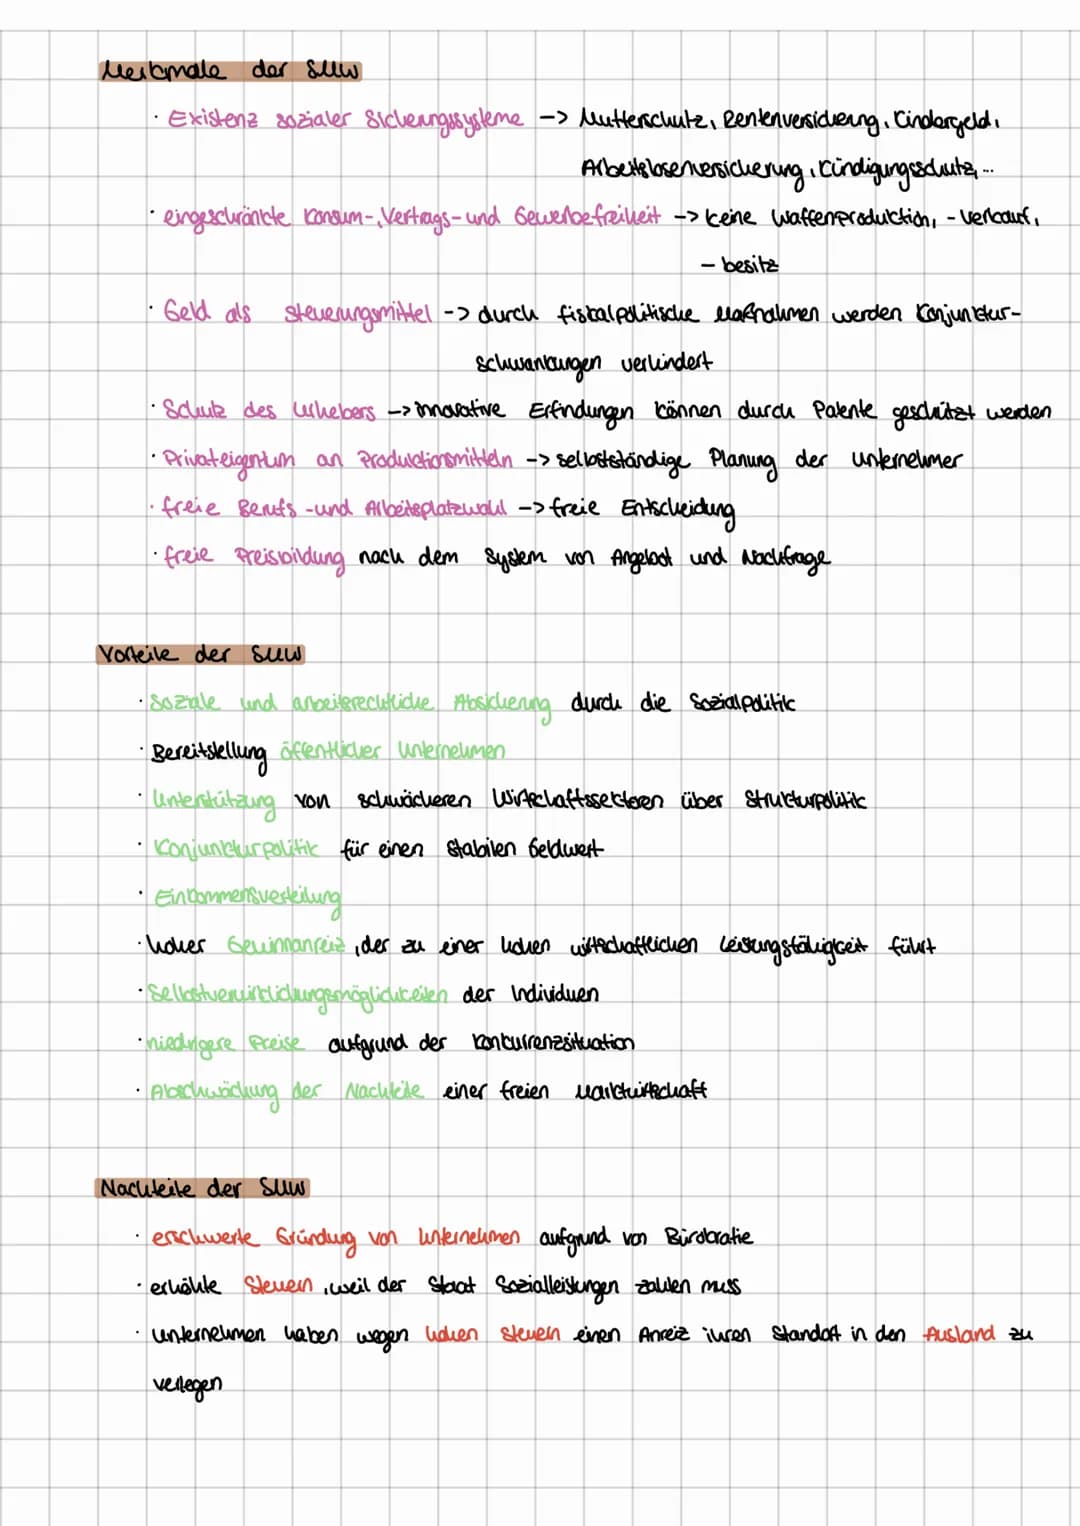 Merkmale der SMW
· Existenz sozialer Sicherungssysteme -> Mutterschutz, Rentenversicherung, Kindergeld,
Arbeitslosenversicherung, Kündigungsschutz, ...
· eingeschränkte Konsum-, Vertrags- und Gewerbefreiheit -> keine Waffenproduktion, -verkauf,
- besitz
· Geld als Steuerungsmittel -> durch fiskalpolitische Maßnahmen werden Konjunktur-
schwankungen verhindert
· Schutz des Urhebers -> innovative Erfindungen können durch Patente geschützt werden
· Privateigentum an Produktionsmitteln -> selbstständige Planung der Unternehmer
· freie Berufs- und Arbeitsplatzwahl -> freie Entscheidung
· freie Preisbildung nach dem System von Angebot und Nachfrage
Vorteile der SMW
· Soziale und arbeitsrechtliche Absicherung durch die Sozialpolitik
· Bereitstellung öffentlicher Unternehmen
· Unterstützung von schwächeren Wirtschaftssektoren über Strukturpolitik
· Konjunkturpolitik für einen stabilen Geldwert
· Einkommensverteilung
· hoher Gewinnanreiz, der zu einer hohen wirtschaftlichen Leistungsfähigkeit führt
· Selbstverwirklichungsmöglichkeiten der Individuen
· niedrigere Preise aufgrund der Konkurrenzsituation
· Abschwächung der Nachteile einer freien Marktwirtschaft
Nachteile der SMW
· erschwerte Gründung von Unternehmen aufgrund von Bürokratie
· erhöhte Steuern, weil der Staat Sozialleistungen zahlen muss
· Unternehmen haben wegen hohen Steuern einen Anreiz ihren Standort in den Ausland zu
verlegen